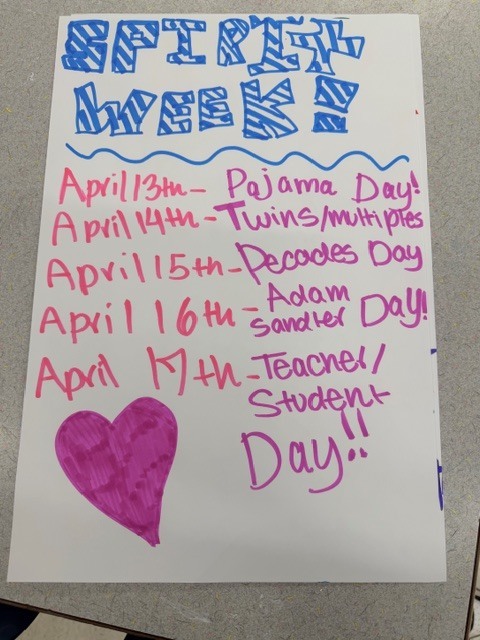 SPIRIT
WEEK!
April 13th - Pajama Day!
April 14th - Twins/multiples
April 15th - Decades Day
April 16th - Adam Sandler Day!
April 17th - Teacher/
Student
Day!!